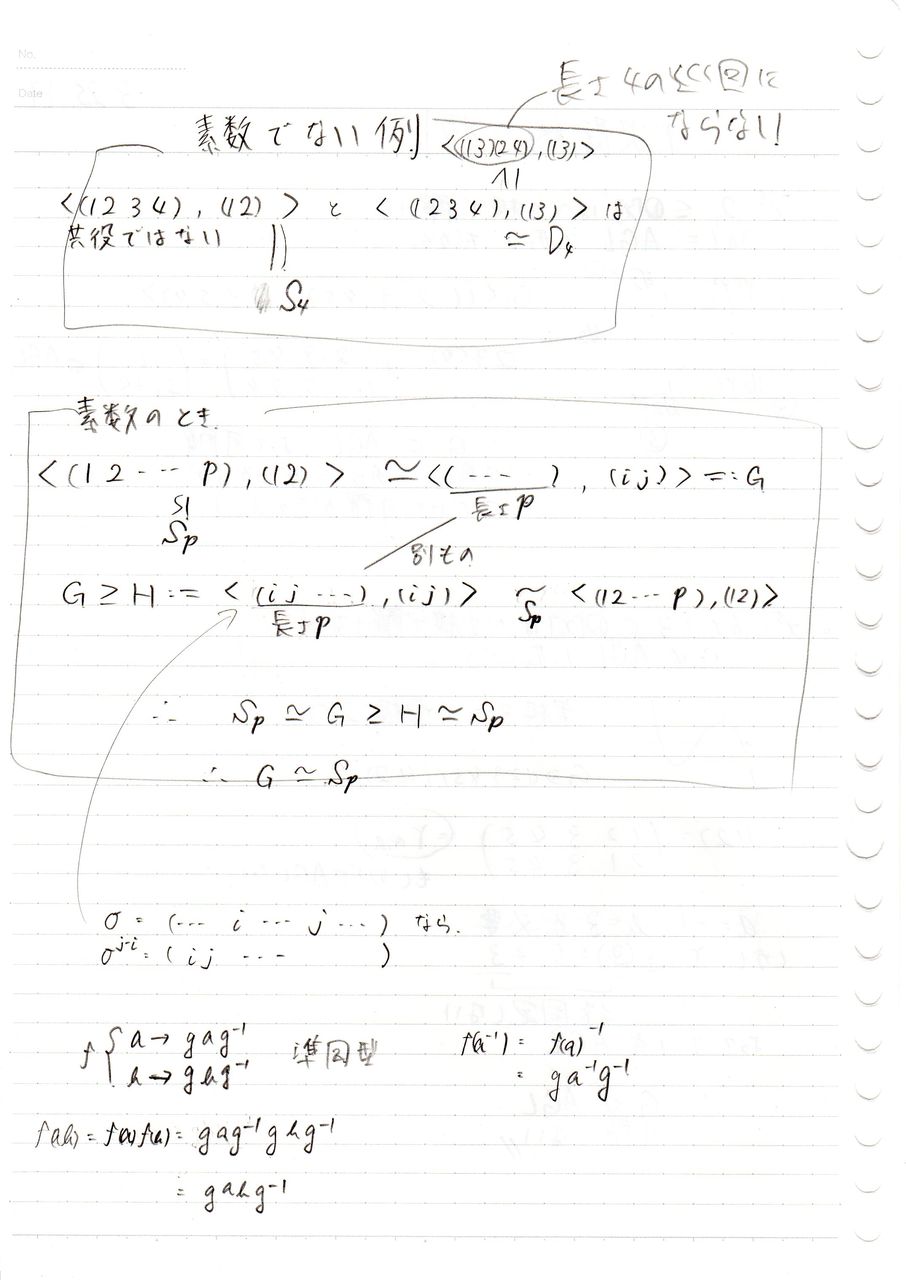 No.
Date
長さ4の
ならない!
素数でない例
<(13)(24), (13)>
<(1 2 3 4), (12)> と <(1234), (13)> は
共役ではない
≃ D₄
S₄
素数のとき.
<(1 2 ⋯ p), (12)> ≃ <(⋯), (i j)> =: G
長さp
S_p
別もの
G ≥ H := <(i j ⋯), (i j)> ~ <(12⋯p), (12)>
長さp
S_p
∴ S_p ≃ G ≥ H ≃ S_p
∴ G ≃ S_p
σ = (⋯ i ⋯ j ⋯) なら.
σ^{j-i} = (i j ⋯ )
f { a → g a g⁻¹
h → g h g⁻¹
準同型
f(a⁻¹) = f(a)⁻¹
= g a⁻¹ g⁻¹
f(ah) = f(a)f(h) = g a g⁻¹ g h g⁻¹
= g a h g⁻¹